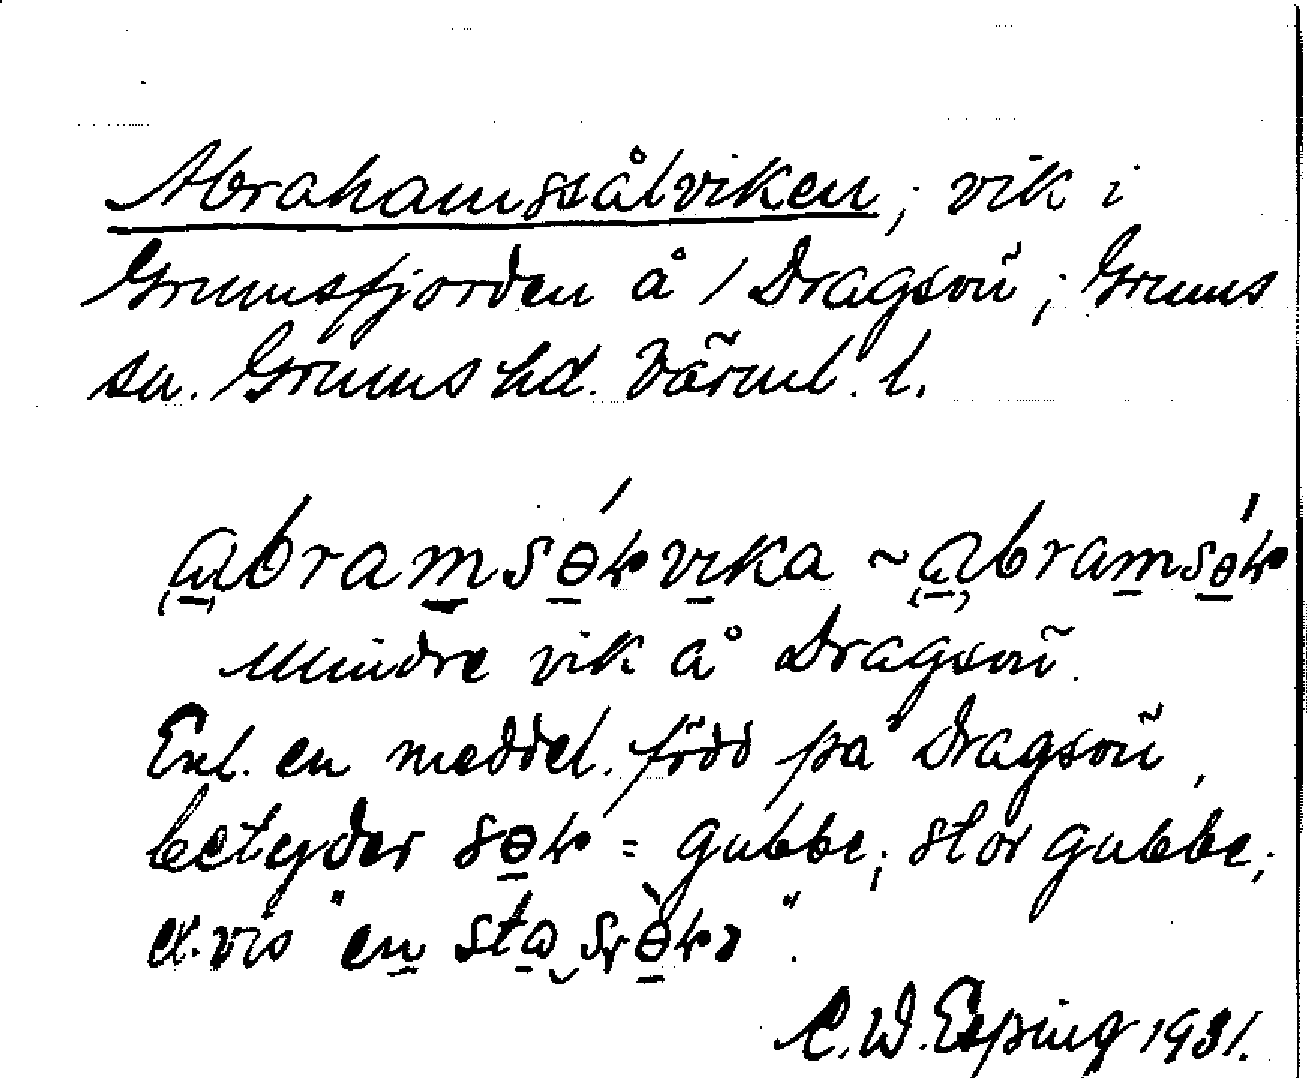 Abrahamssålviken; vik i
Grumsfjorden å / Dragsön; Grums
sn. Grums hd. Värml. l.
Mindre vik å Dragsön.
Enl. en meddel. född på Dragsön,
betyder = gubbe; stor gubbe;
ex.vis "en
C.W. Esping 1931.